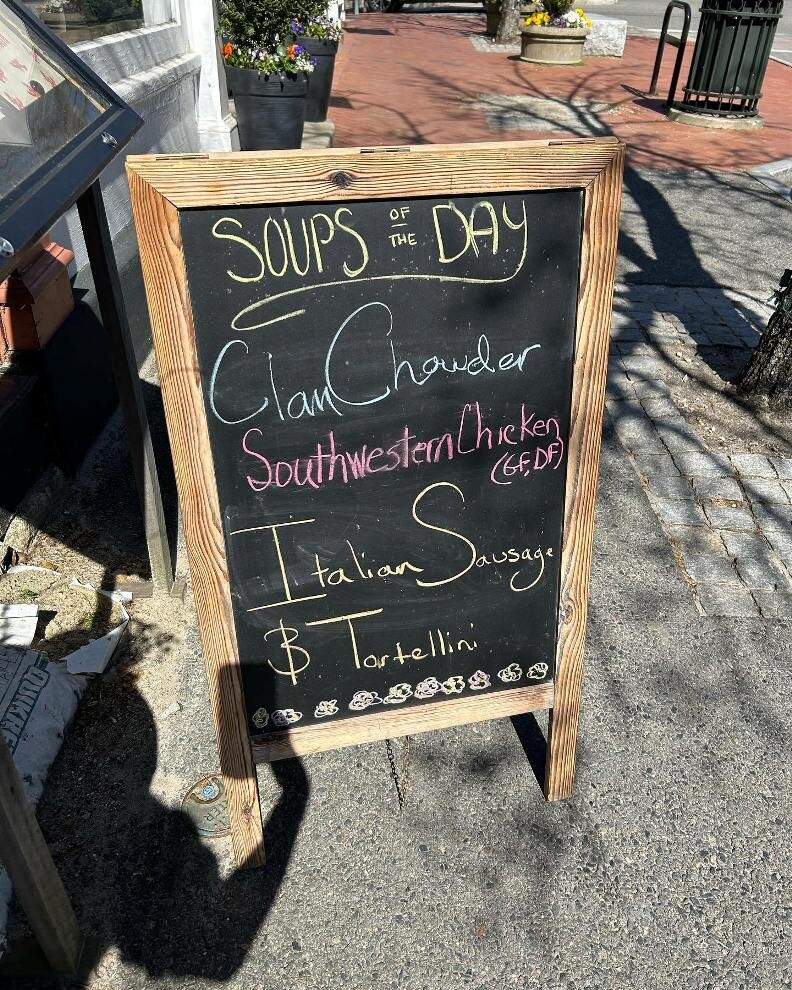 SOUPS OF THE DAY
Clam Chowder
Southwestern Chicken
(GF, DF)
Italian Sausage
& Tortellini